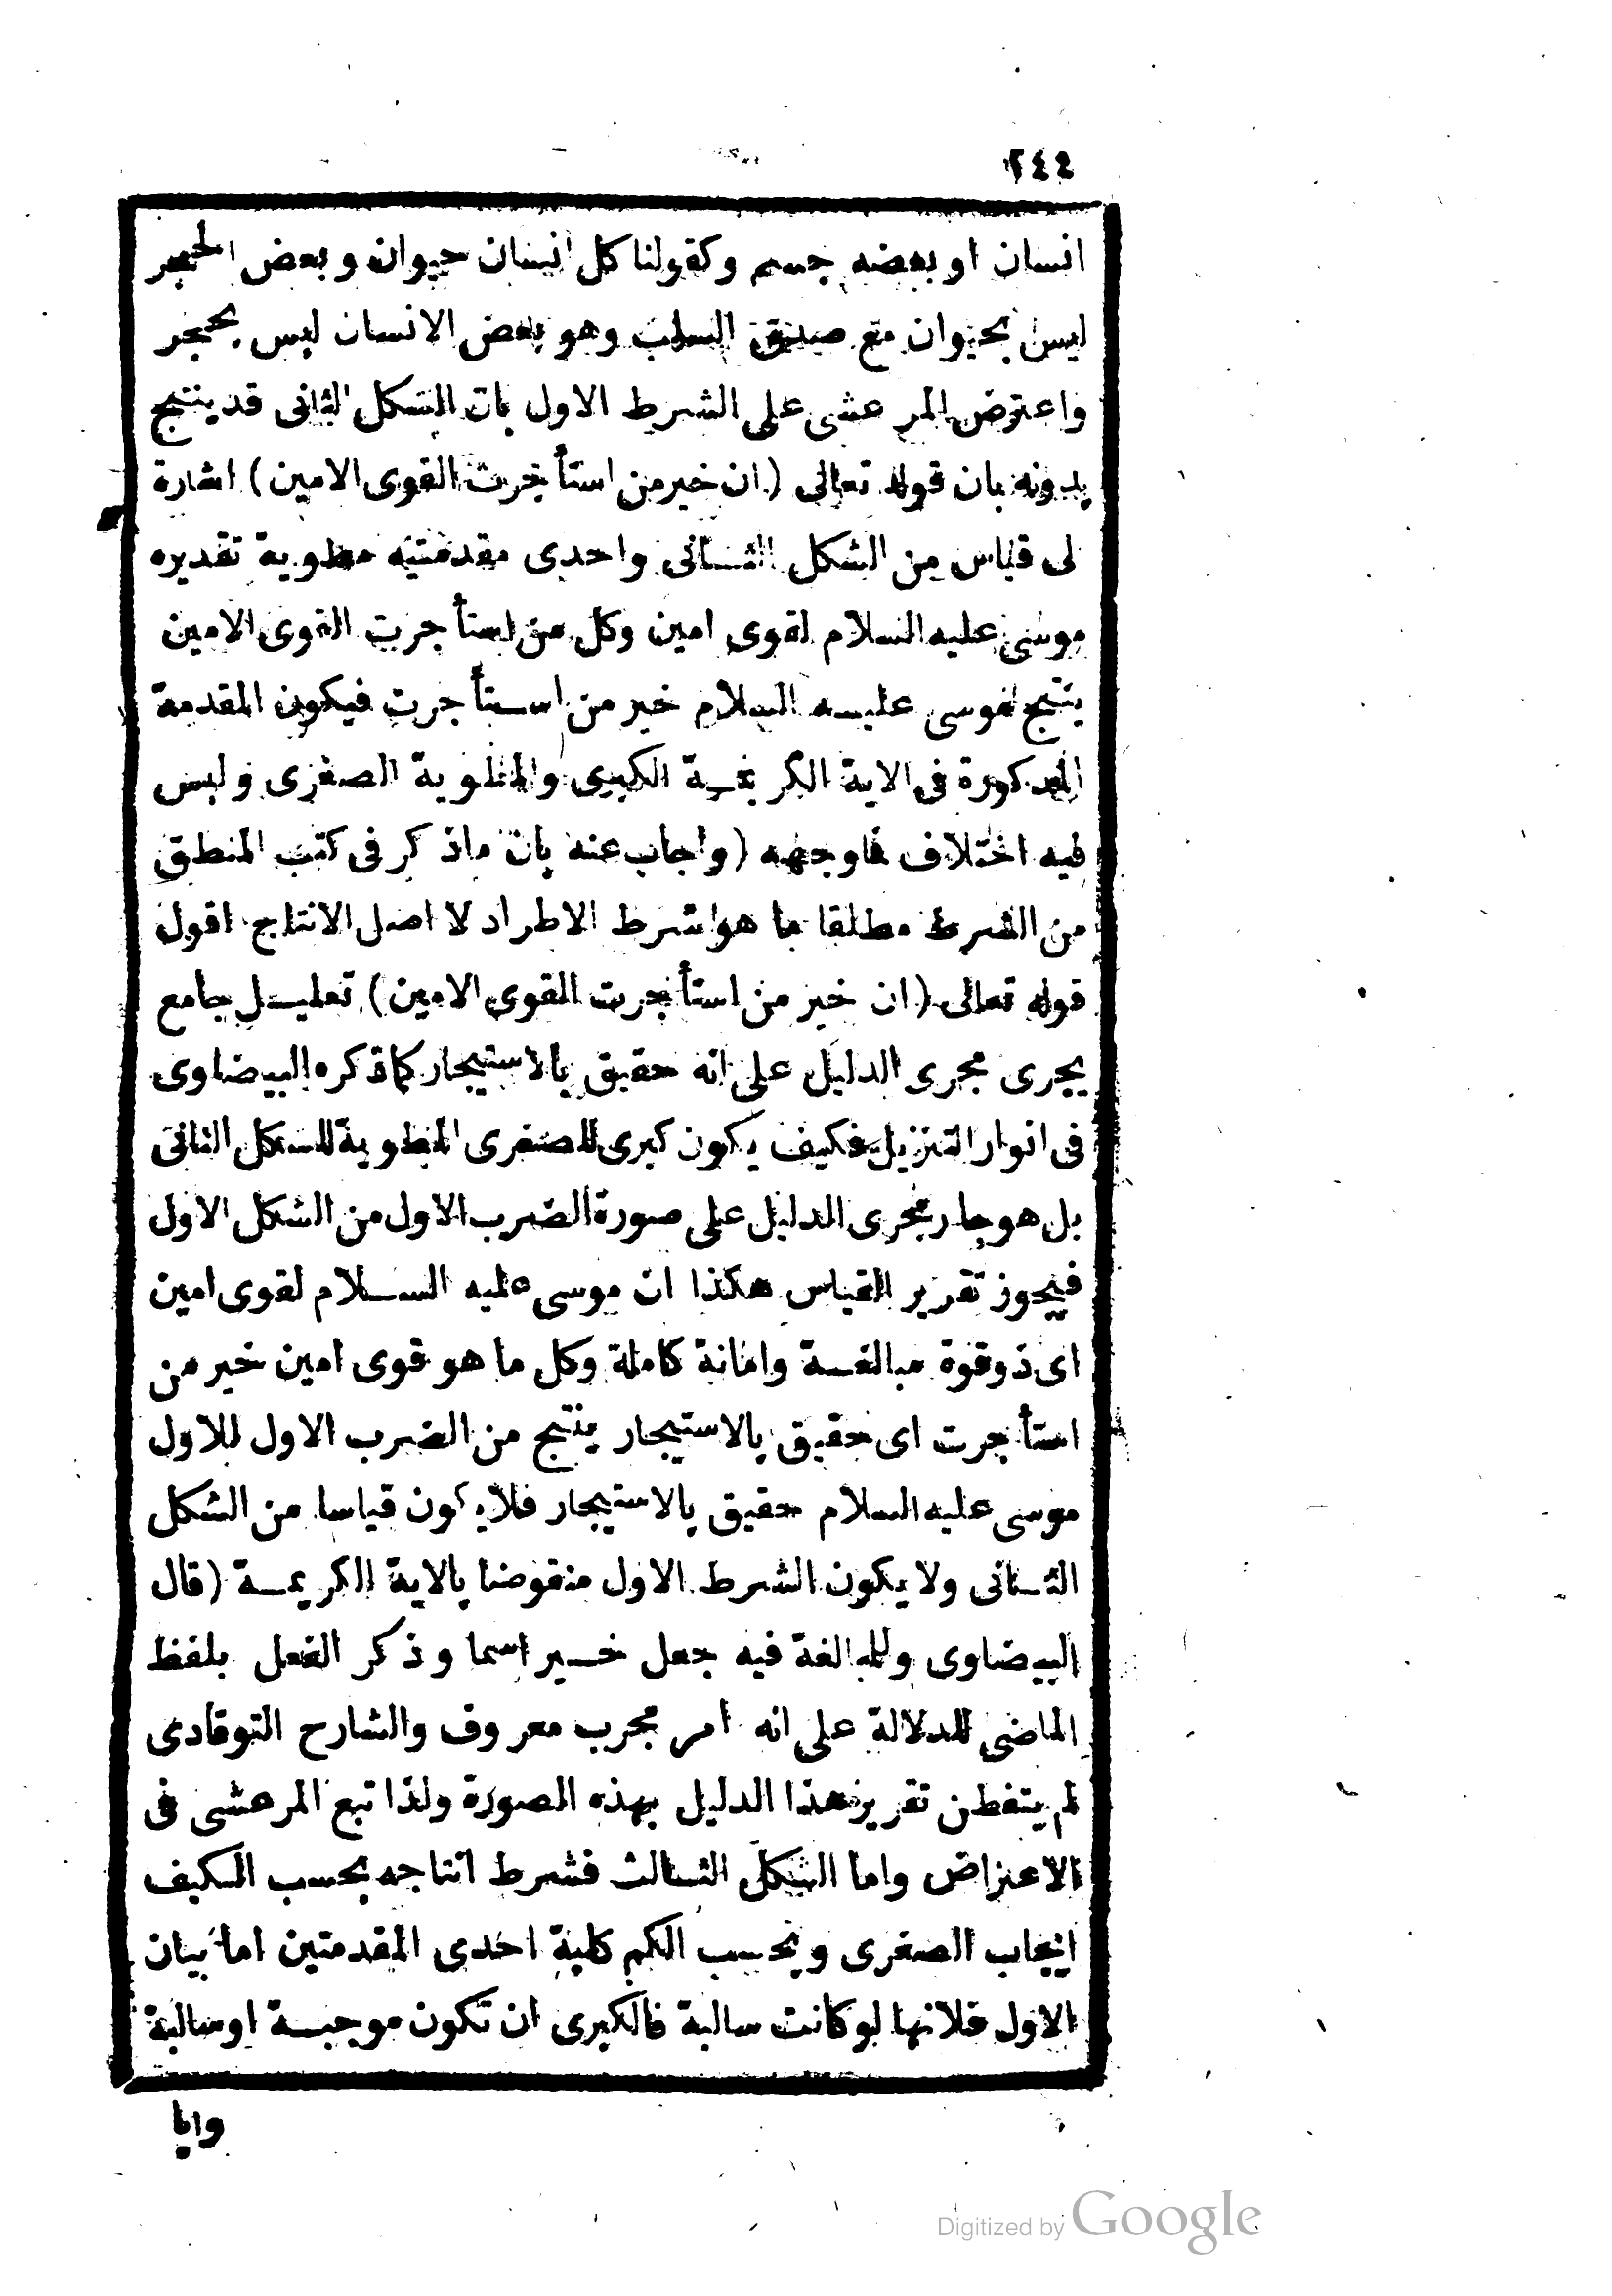 ٢٤٤
انسان او بعضه جسم وكقولنا كل انسان حيوان وبعض الحجر
ليس بحيوان مع صدق السلب وهو بعض الانسان ليس بحجر
واعترض المرعشى على الشرط الاول بان الشكل الثانى قد ينتج
بدونه بان قوله تعالى (ان خير من استأجرت القوى الامين) اشارة
لى قياس من الشكل الثانى واحدى مقدمتيه مطوية تقديره
موسى عليه السلام لقوى امين وكل من استأجرت القوى الامين
ينتج لموسى عليه السلام خير من استأجرت فيكون المقدمة
المذكورة فى الاية الكريمة الكبرى والمطوية الصغرى وليس
فيه اختلاف فاوجهه (واجاب عنه بان ماذكر فى كتب المنطق
من الشرط مطلقا ما هو اشرط الاطراد لا اصل الانتاج اقول
قوله تعالى (ان خير من استأجرت القوى الامين) تعليل جامع
يجرى مجرى الدليل على انه حقيق بالاستيجار كماذكره البيضاوى
فى انوار التنزيل فكيف يكون كبرى للصغرى المطوية للشكل الثانى
بل هو جار مجرى الدليل على صورة الضرب الاول من الشكل الاول
فيجوز تقرير القياس هكذا ان موسى عليه السلام لقوى امين
اى ذوقوة مبالغة وامانة كاملة وكل ما هو قوى امين خير من
استأجرت اى حقيق بالاستيجار ينتج من الضرب الاول للاول
موسى عليه السلام حقيق بالاستيجار فلايكون قياسا من الشكل
الثانى ولا يكون الشرط الاول منقوضا بالاية الكريمة (قال
البيضاوى وللمبالغة فيه جعل خير اسما وذكر الفعل بلفظ
الماضى للدلالة على انه امر مجرب معروف والشارح التوقادى
لم يتفطن تقرير هذا الدليل بهذه الصورة ولذا تبع المرعشى فى
الاعتراض واما الشكل الثالث فشرط انتاجه بحسب الكيف
ايجاب الصغرى وبحسب الكم كلية احدى المقدمتين اما بيان
الاول فلانها لوكانت سالبة فالكبرى ان تكون موجبة اوسالبة
وايا
Digitized by Google